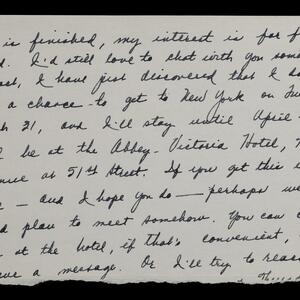 is finished, my interest is far f
d. I'd still love to chat with you some
act, I have just discovered that I do
a chance to get to New York on Tu
h 21, and I'll stay until April
l be at the Abbey-Victoria Hotel, 7
nue at 51st Street. If you get this i
e — and I hope you do — perhaps we
d plan to meet somehow. You can c
at the hotel, if that's convenient,
ave a message. Or I'll try to reas